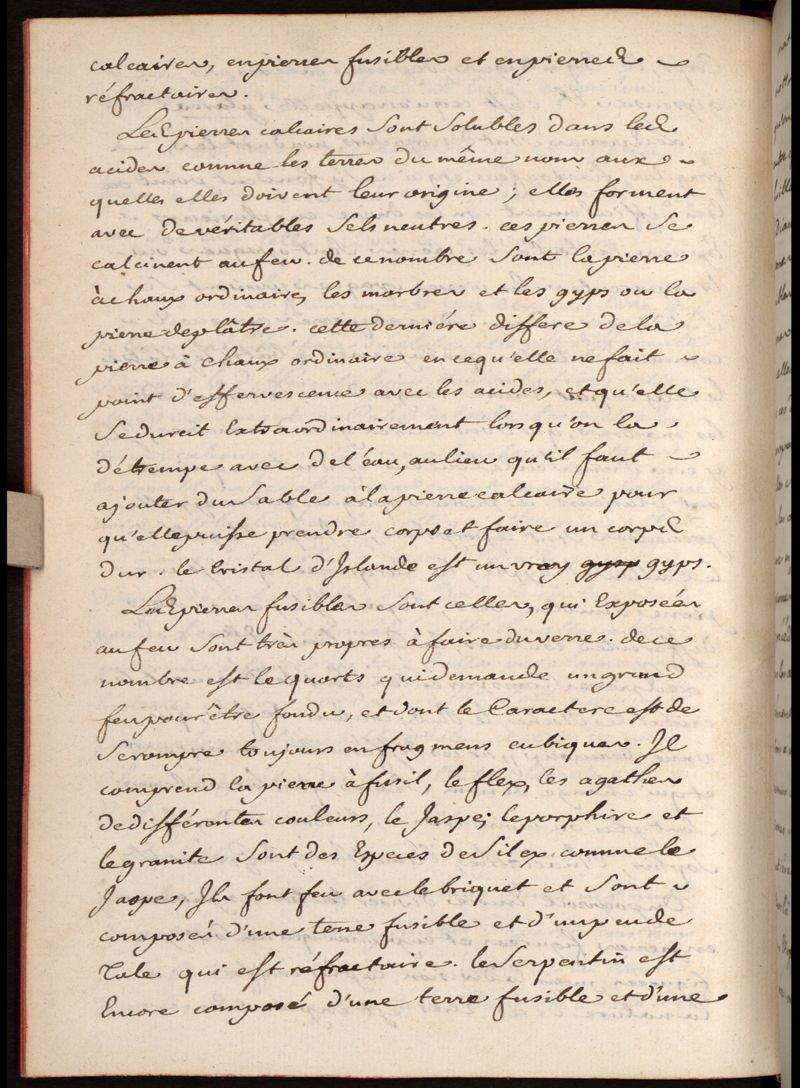 calcaires, en pierres fusibles et en pierres
réfractaires.
Les pierres calcaires sont solubles dans les
acides comme les terres du même nom aux
quelles elles doivent leur origine ; elles forment
avec de véritables sels neutres. ces pierres se
calcinent au feu. de ce nombre sont la pierre
à chaux ordinaire, les marbres et les gyps ou la
pierre de plâtre. cette derniére differe de la
pierre à chaux ordinaire en ce qu'elle ne fait
point d'effervescence avec les acides, et qu'elle
se durcit Extraordinairement lorsqu'on la
détrempe avec de l'éau, au lieu qu'il faut
ajouter du sable à la pierre calcaire pour
qu'elle puisse prendre corps et faire un corps
dur. le Cristal d'Islande est un vray gysp gyps.
Les pierres fusibles sont celles, qui Exposées
au feu sont très propres à faire du verre. de ce
nombre est le quarts qui demande un grand
feu pour être fondu, et dont le Caractere est de
se rompre toujours en fragmens cubiques. Il
comprend la pierre à fusil, le flex, les agathes
de différentes couleurs, le Jaspe; le porphire et
le granite sont des Especes de silex comme le
Jaspe, Ils font feu avec le briquet et sont
composés d'une terre fusible et d'un peu de
Talc qui est réfractaire. le Serpentin est
Encore composé d'une terre fusible et d'une